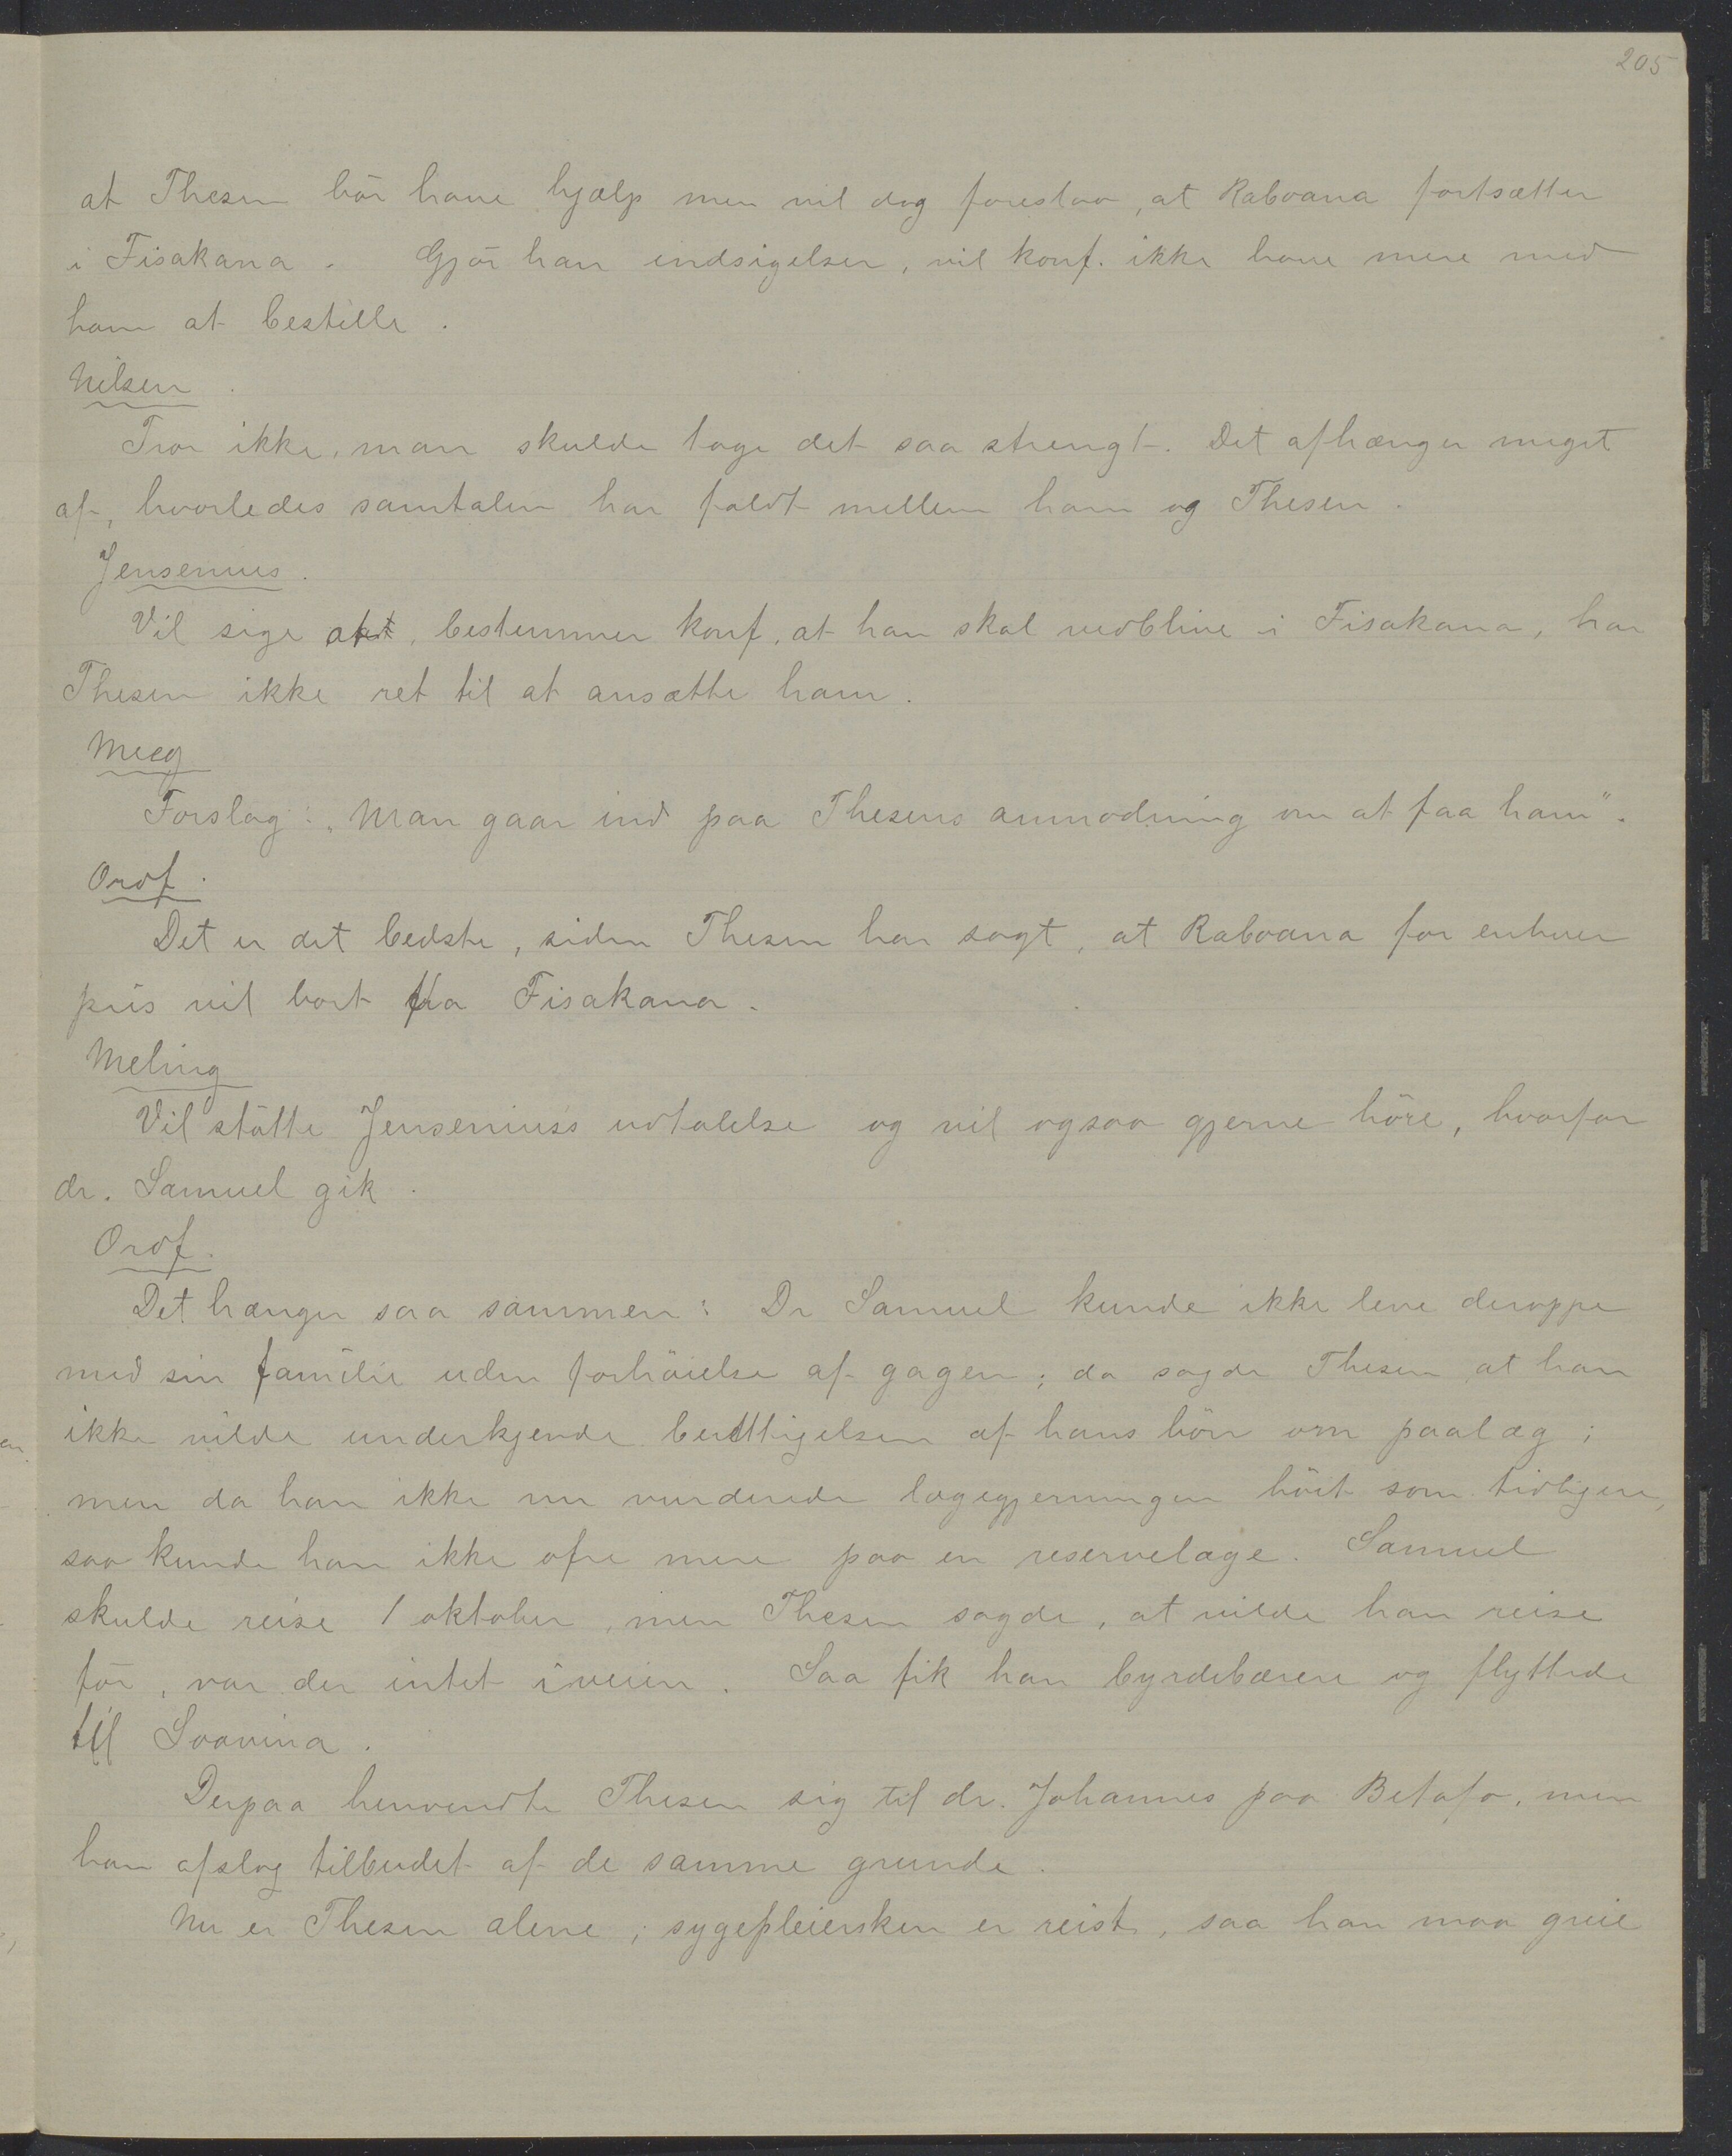 205
at Thesen bör have hjælp men vil dog foreslaa, at Raboana fortsætter
i Fisakana. Gjör han indsigelser, vil konf. ikke have mere med
ham at bestille.
Nilsen.
Tror ikke, man skulde tage det saa strengt. Det afhænger meget
af, hvorledes samtalen har faldt mellem ham og Thesen.
Jensenius.
Vil sige at, bestemmer konf, at han skal vedblive i Fisakana, har
Thesen ikke ret til at ansætte ham.
Meeg
Forslag: „Man gaar ind paa Thesens anmodning om at faa ham".
Ordf.
Det er det bedste, siden Thesen har sagt, at Raboana for enhver
pris vil bort fra Fisakana.
Meling
Vil stötte Jensenius's udtalelse og vil ogsaa gjerne höre, hvorfor
dr. Samuel gik.
Ordf.
Det hænger saa sammen: Dr Samuel kunde ikke leve deroppe
med sin familie uden forhöielse af gagen; da sagde Thesen at han
ikke vilde underkjende berettigelsen af hans bön om paalæg;
men da han ikke nu vurderede lægegjerningen höit som tidligere,
saa kunde han ikke ofre mere paa en reservelæge. Samuel
skulde reise 1 oktober, men Thesen sagde, at vilde han reise
för, var der intet iveien. Saa fik han byrdebærere og flyttede
til Soavina.
Derpaa henvendte Thesen sig til dr. Johannes paa Betafo, men
han afslog tilbudet af de samme grunde.
Nu er Thesen alene; sygepleiersken er reist, saa han maa greie